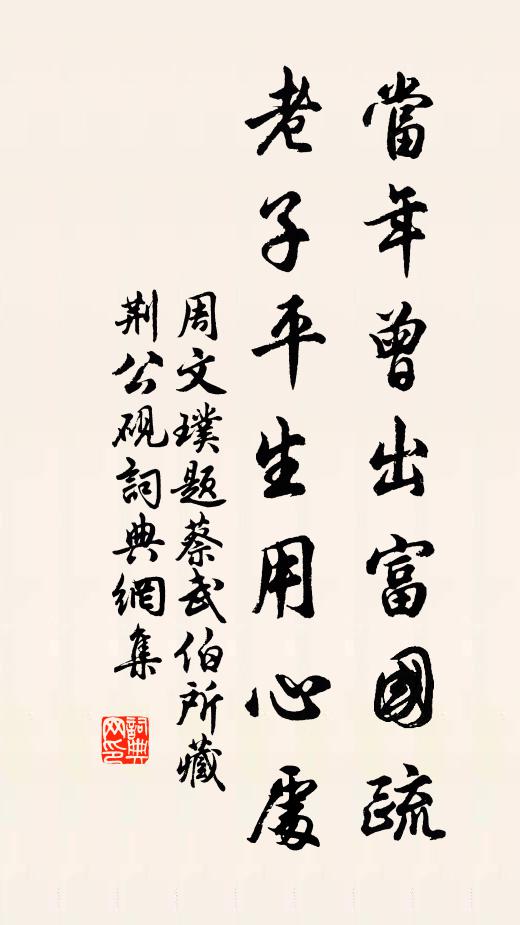 當年曾出富國疏
老子平生用心處
周文璞題蔡武伯所藏
荆公硯詞典網集
詞典网印